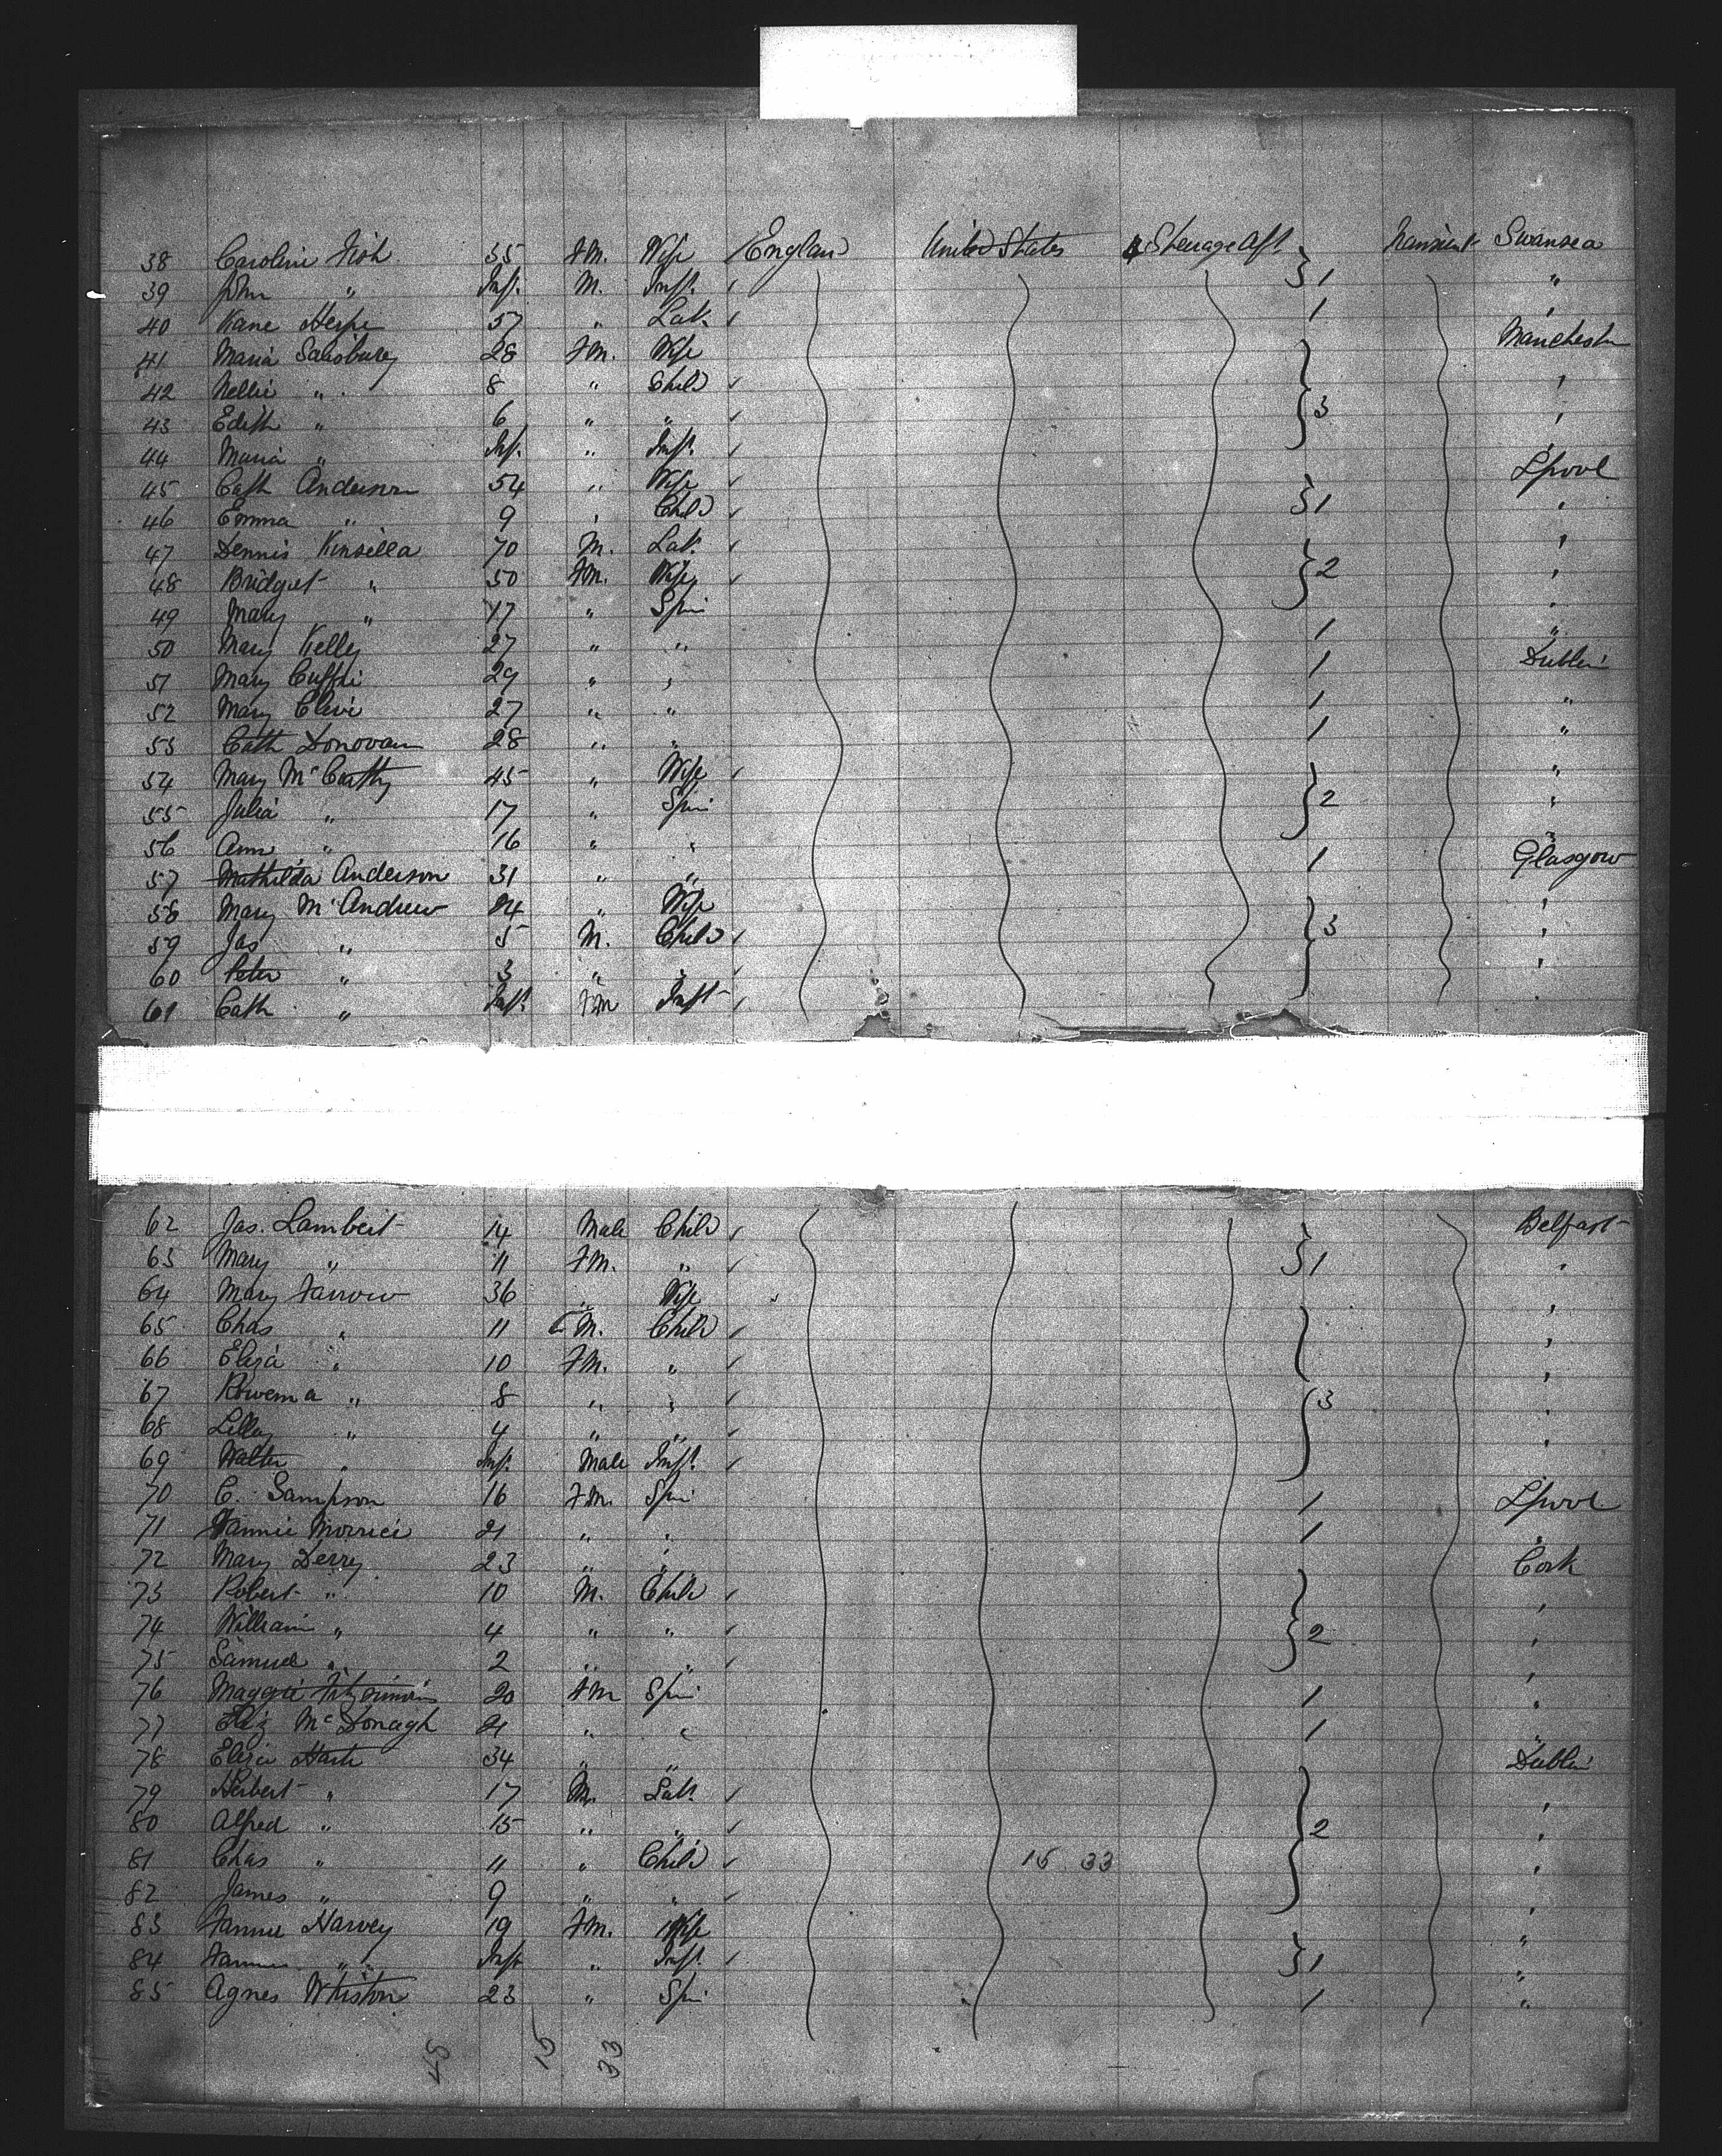 38 Caroline Fish 35 Fm. Wife England United States Steerage Aft Transient Swansea
39 John " Inf. M. Inft. } 1 "
40 Kane 57 " Lab. 1 "
41 Maria Salisbury 28 Fm. Wife Manchester
42 Nellie " 8 " Child "
43 Edith " 6 " " } 3 "
44 Maria " Inf. " Inft. "
45 Cath Anderson 54 " Wife L'pool
46 Emma " 9 " Child } 1 "
47 Dennis Kinsella 70 M. Lab. "
48 Bridget " 50 Fm. Wife } 2 "
49 Mary " 17 " Spin "
50 Mary Kelly 27 " " 1 "
51 Mary 29 " " 1 Dublin
52 Mary 27 " " 1 "
53 Cath Donovan 28 " " 1 "
54 Mary McCarthy 45 " Wife "
55 Julia " 17 " Spin } 2 "
56 Ann " 16 " " "
57 Mathilda Anderson 31 " " 1 Glasgow
58 Mary McAndrew 24 " Wife "
59 Jas " 5 M. Child } 3 "
60 Peter " 3 " " "
61 Cath " Inft. Fm Inft
62 Jas. Lambert 14 Male Child Belfast
63 Mary " 11 Fm. " } 1 "
64 Mary Farrow 36 " Wife "
65 Chas " 11 M. Child "
66 Eliza " 10 Fm. " "
67 Rowena " 8 " " } 3 "
68 Lilly " 4 " " "
69 Walter " Inf. Male Inft.
70 C. Sampson 16 Fm. Spin 1 L'pool
71 Fannie 21 " " 1 "
72 Mary Derry 23 " " Cork
73 Robert " 10 M. Child "
74 William " 4 " " } 2 "
75 Samuel " 2 " " "
76 Maggie Fitzsimons 20 Fm Spin 1 "
77 Eliz McDonagh 21 " " 1 "
78 Eliza Harte 34 " " Dublin
79 Herbert " 17 M. Lab. "
80 Alfred " 15 " " } 2 "
81 Chas " 11 " Child 15 33 "
82 James " 9 " " "
83 Fannie Harvey 19 Fm. Wife "
84 Fannie " Inft " Inft. } 1 "
85 Agnes Whiston 23 " Spin 1 "
48 15 33